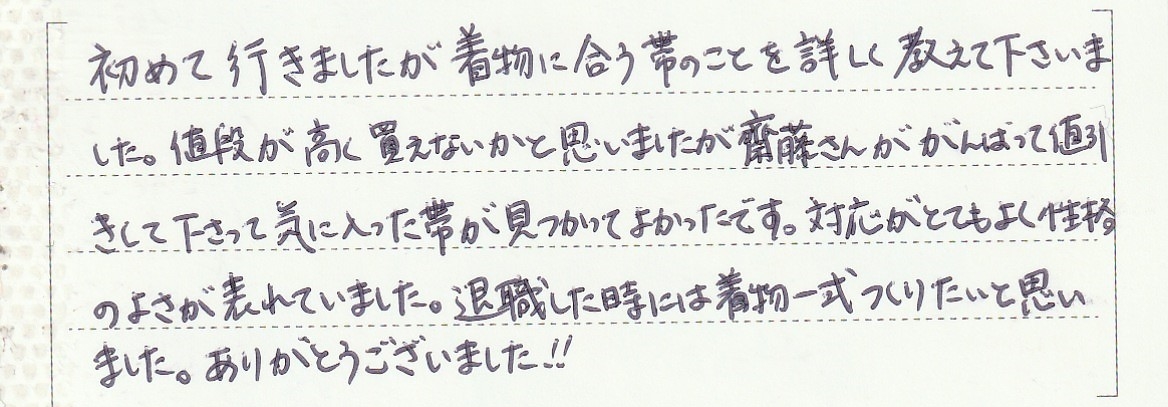 初めて行きましたが着物に合う帯のことを詳しく教えて下さいま
した。値段が高く買えないかと思いましたが齋藤さんががんばって値引
きして下さって気に入った帯が見つかってよかったです。対応がとてもよく性格
のよさが表れていました。退職した時には着物一式つくりたいと思い
ました。ありがとうございました!!